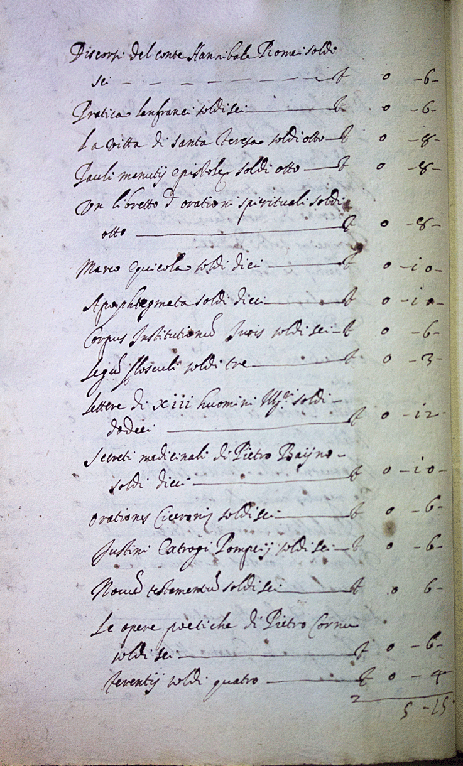 Discorsi del conte Hannibale Romei soldi
sei — £ 0 -6-
Pratica lanfranci soldi sei — £ 0 -6-
La vitta di santa Teresa soldi otto — £ 0 -8-
Pauli manutij epistole soldi otto — £ 0 -8-
Un libretto d orationi spirituali soldi
otto — £ 0 -8-
Mario equicola soldi dieci — £ 0 -10-
Apophtegmata soldi dieci — £ 0 -10-
Corpus Institutionũ Juris soldi sei £ 0 -6-
Legũ flosculi soldi tre — £ 0 -3-
Lettere di xiii huomini Ill.ri soldi
dodeci — £ 0 -12-
Secreti medicinali di Pietro Bajro-
soldi dieci — £ 0 -10-
Orationes Ciceronis soldi sei — £ 0 -6-
Justini Trogi Pompeij soldi sei — £ 0 -6-
Novũ testamentũ soldi sei — £ 0 6-
Le opere poetiche di Pietro
soldi sei — £ 0 -6-
Terentij soldi quatro — £ 0 -4-
5 -15